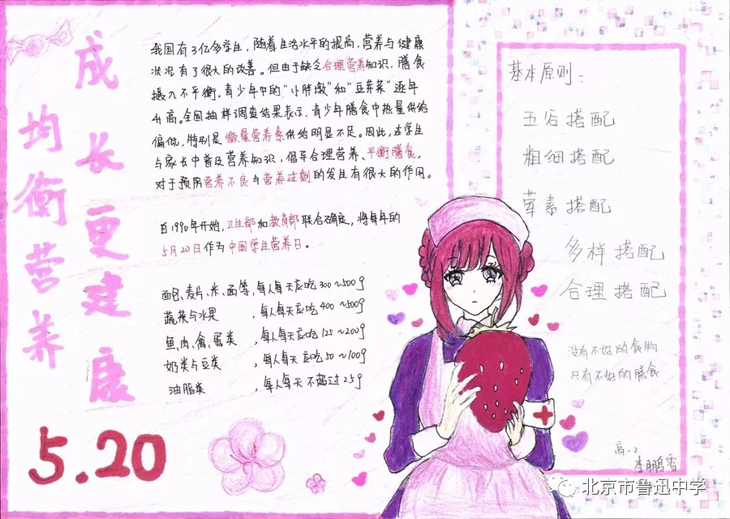 均衡营养
成长更健康
5.20
我国有3亿多学生，随着生活水平的提高，营养与健康
状况有了很大的改善。但由于缺乏合理营养知识，膳食
摄入不平衡，青少年中的“小胖墩”和“豆芽菜”逐年
升高。全国抽样调查结果表示，青少年膳食中热量供给
偏低，特别是微量营养素供给明显不足。因此，在学生
与家长中普及营养知识，倡导合理营养、平衡膳食，
对于预防营养不良与营养过剩的发生有很大的作用。
自1990年开始，卫生部和教育部联合确定，将每年的
5月20日作为中国学生营养日。
面包、麦片、米、面等，每人每天应吃300~500g
蔬菜与水果，每人每天应吃400~500g
鱼、肉、禽、蛋类，每人每天应吃125~200g
奶类与豆类，每人每天应吃50~100g
油脂类，每人每天不超过25g
基本原则：
五谷搭配
粗细搭配
荤素搭配
多样搭配
合理搭配
没有不好的食物
只有不好的膳食
北京市鲁迅中学